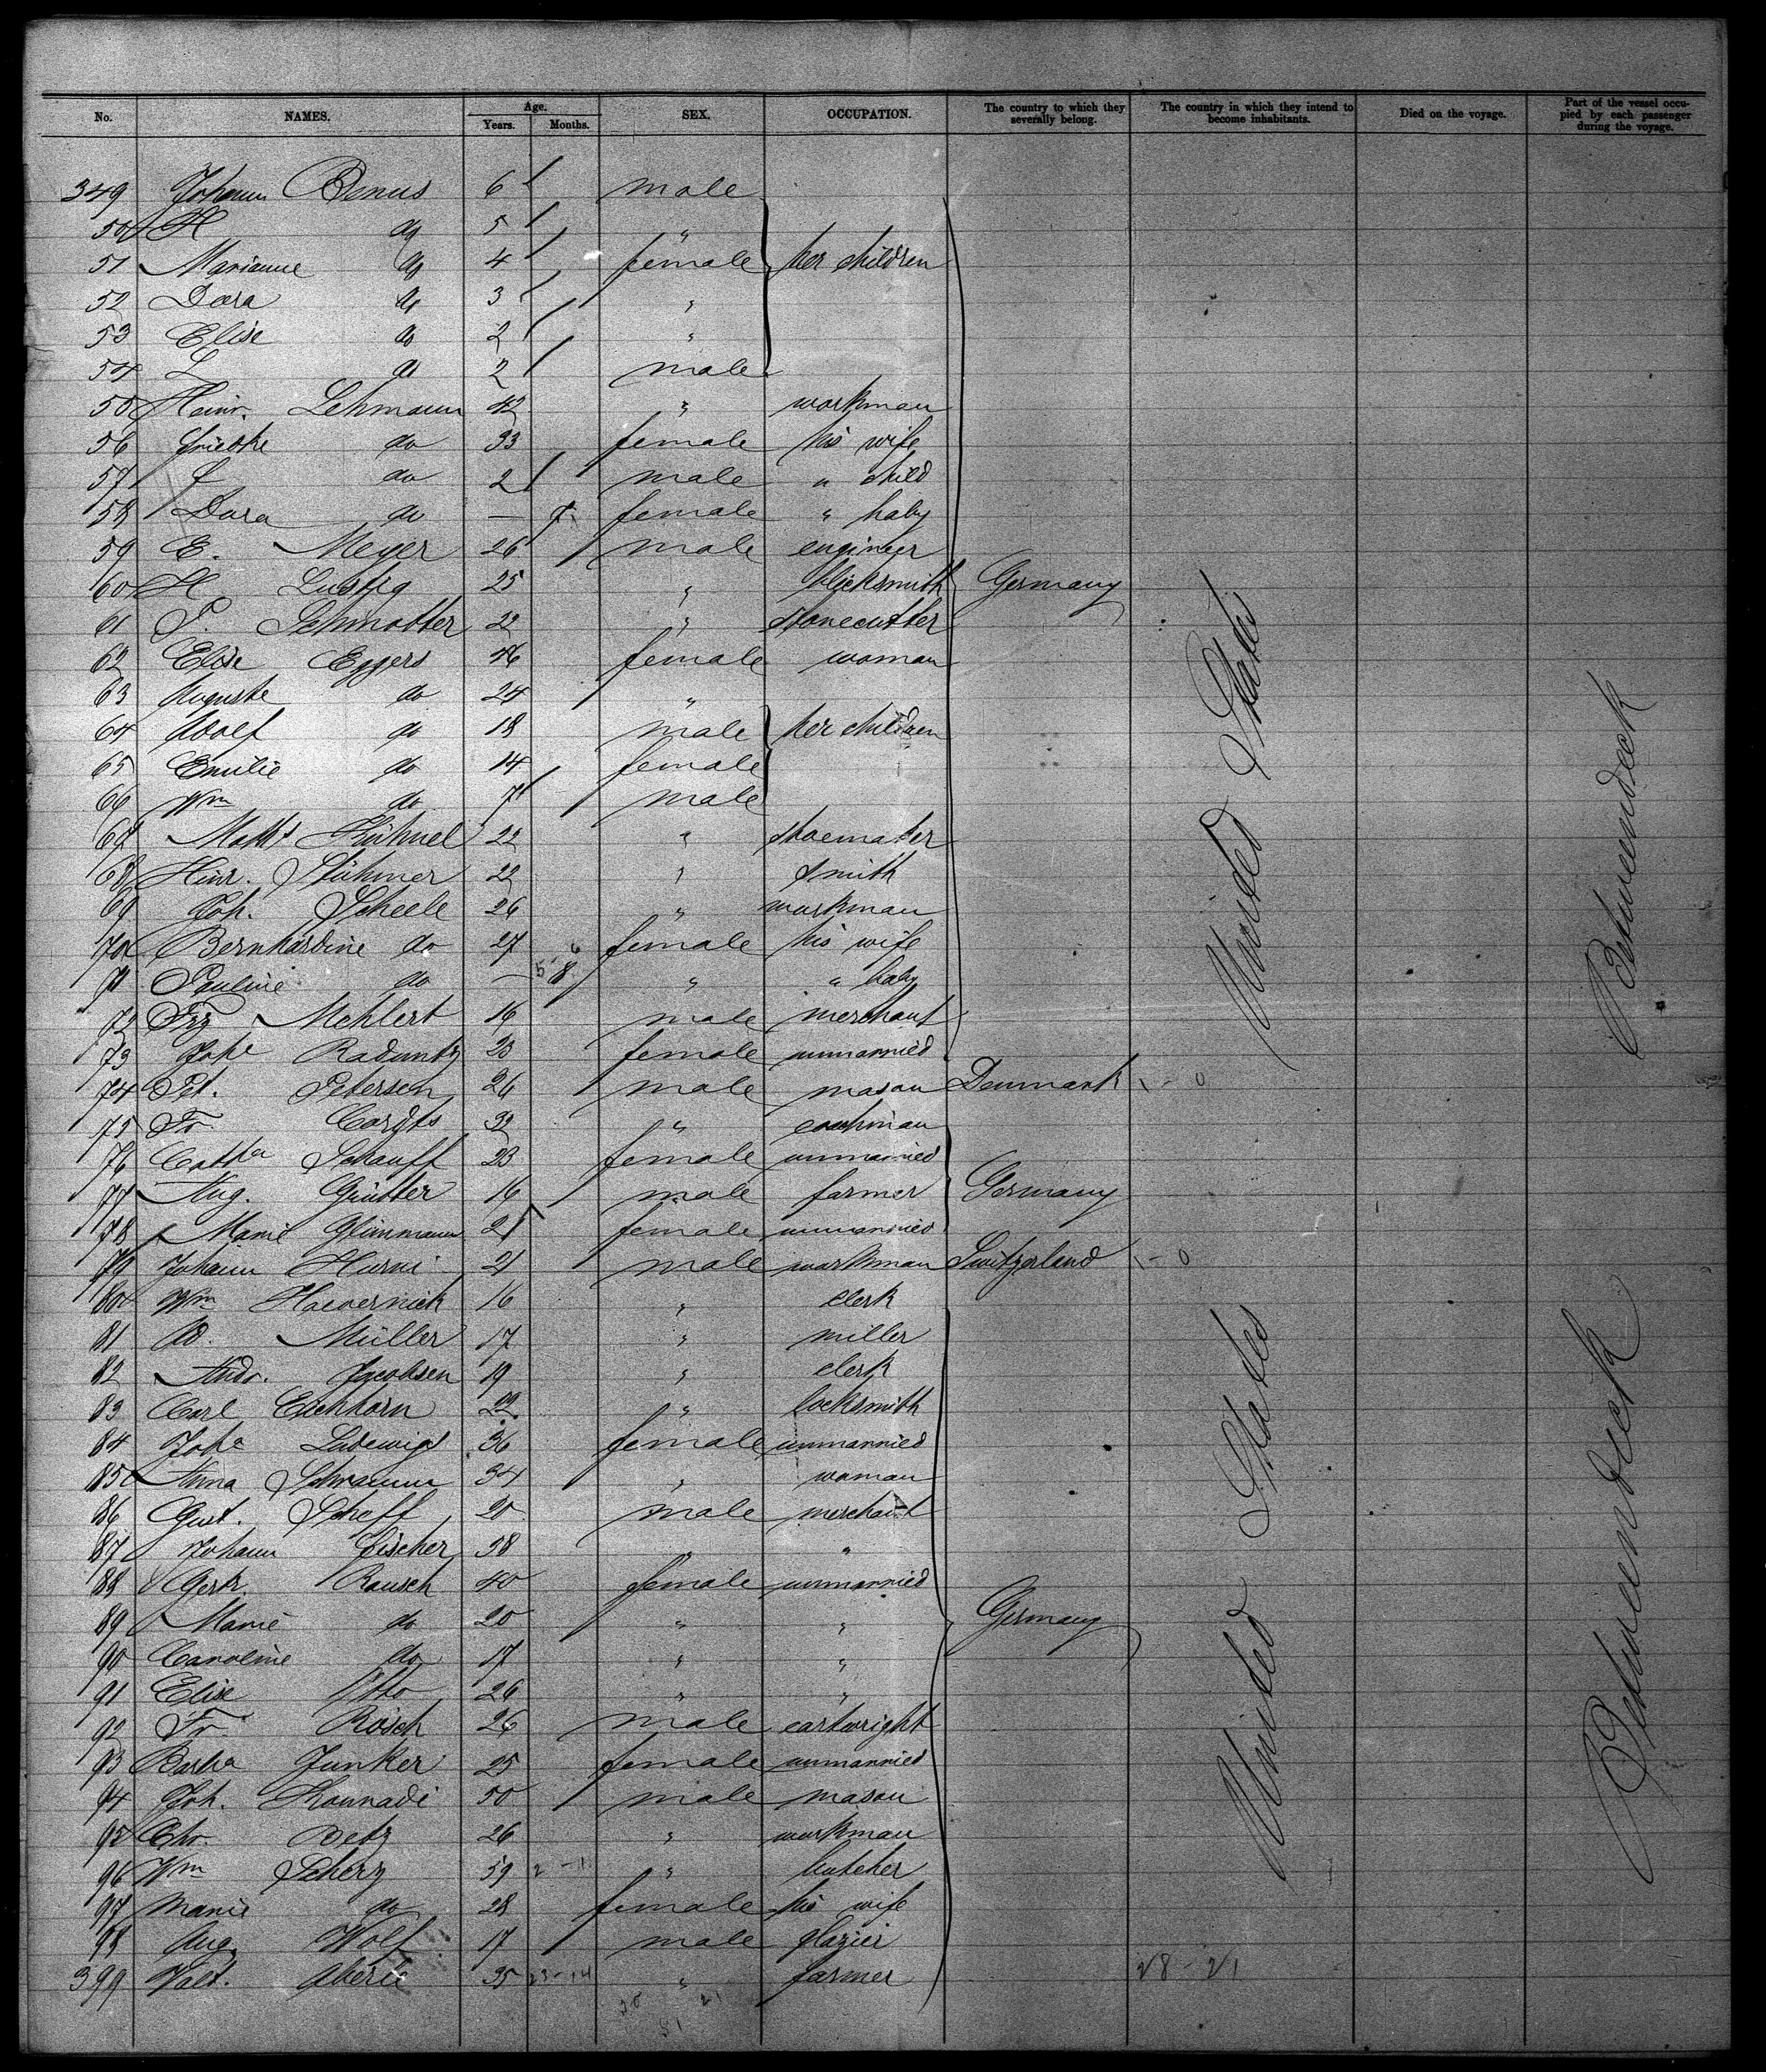 No. NAMES. Age. Years. Months. SEX. OCCUPATION. The country to which they severally belong. The country in which they intend to become inhabitants. Died on the voyage. Part of the vessel occupied by each passenger during the voyage.
349 Johann Benus 6 male
50 H do 5 "
51 Marianne do 4 female her children
52 Dora do 3 "
53 Elise do 2 "
54 L do 2 male
55 Heinr. Lehmann 42 " workman
56 Friedke do 33 female his wife
57 L do 2 male " child
58 Dora do — female " baby
59 E. Meyer 26 male engineer
60 H Lustig 25 " blacksmith Germany
61 P. Schmotter 22 " stonecutter
62 Elise Eggers 46 female woman
63 Auguste do 24 "
64 Adolf do 18 male her children
65 Emilie do 14 female
66 Wm do 7 male
67 Maths Kühnel 22 " shoemaker
68 Hinr. Stühmer 22 " smith
69 Joh. Scheele 26 " workman
70 Bernhardine do 27 female his wife
71 Pauline do — 8 " " baby
72 Frz Mehlert 16 male merchant
73 Johe Raduntz 23 female unmarried
74 Pet. Petersen 26 male mason Denmark
75 Fr. Cordts 32 " coachman
76 Catha Schauff 23 female unmarried
77 Aug. Günther 16 male farmer Germany
78 Marie Glimmann 21 female unmarried
79 Johann Hurni 21 male workman Switzerland
80 Wm Haevernick 16 " clerk
81 Ad. Müller 17 " miller
82 Andr. Jacobsen 19 " clerk
83 Carl Eichhorn 22 " locksmith
84 Joha Ludewigs 36 female unmarried
85 Anna Schramm 34 " woman
86 Gust. Scheff 20 male merchant
87 Johann Fischer 38 " "
88 Gertr. Rausch 40 female unmarried
89 Marie do 20 " " Germany
90 Caroline do 17 " "
91 Elise Otto 26 " "
92 Fr. Rösch 26 male cartwright
93 Barba Junker 25 female unmarried
94 Joh. Kounadi 50 male mason
95 Chr. Betz 26 " workman
96 Wm Scherz 59 " butcher
97 Marie do 28 female his wife
98 Aug. Wolf 17 male glazier
399 Valt. Aberle 35 " farmer
28 - 21
United States
Betweendeck
United States
Betweendeck